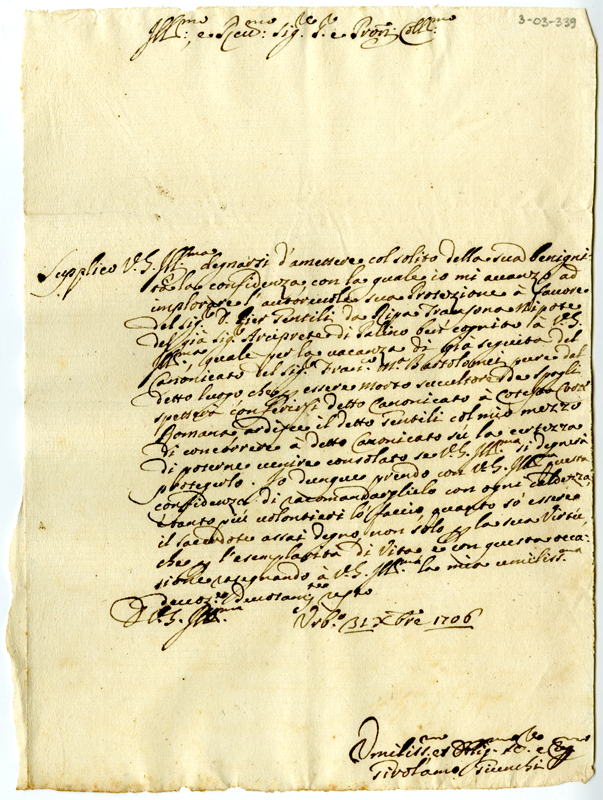 3-03-339
Ill.mo, e Rev.mo Sig.re P.re e Pron. Coll.mo
Supplico V.S. Ill.ma degnarsi d'amettere col solito della sua benigni-
tà la confidenza con la quale io mi avanzo ad
implorare l'autorevole sua Protezione à favore
del Sig.r D. Pier Gentili da Ripa Transona Nipote
del già Sig.r Arciprete di ben cognito à V.S.
Ill.ma, quale per la vacanza di già seguita del
Canonicato del Sig.r Fran.co M.a Bartolomei pure del
detto luogo che essere morto succultore de spogli
spettarà conferirsi detto Canonicato à cotesta Corte
Romana, ardisce il detto Gentili col mio mezzo
di concorrere à detto Canonicato sù la certezza
di poterne venire consolato se V.S. Ill.ma si degnerà
proteggerlo. Io dunque prendo con V.S. Ill.ma questa
confidenza di racomandarglielo con ogni caldezza,
e tanto più volontieri lo faccio quanto sò essere
il sacerdote assai degno non solo p la sua Virtù,
che p l'esemplarità di Vita e con questa occa-
sione rasegnando à V.S. Ill.ma la mia umiliss.ma
devoz.ne
D V.S. Ill.ma
Urb.o 31 Xbre 1706
Umiliss.mo et Oblig.mo
Girolamo